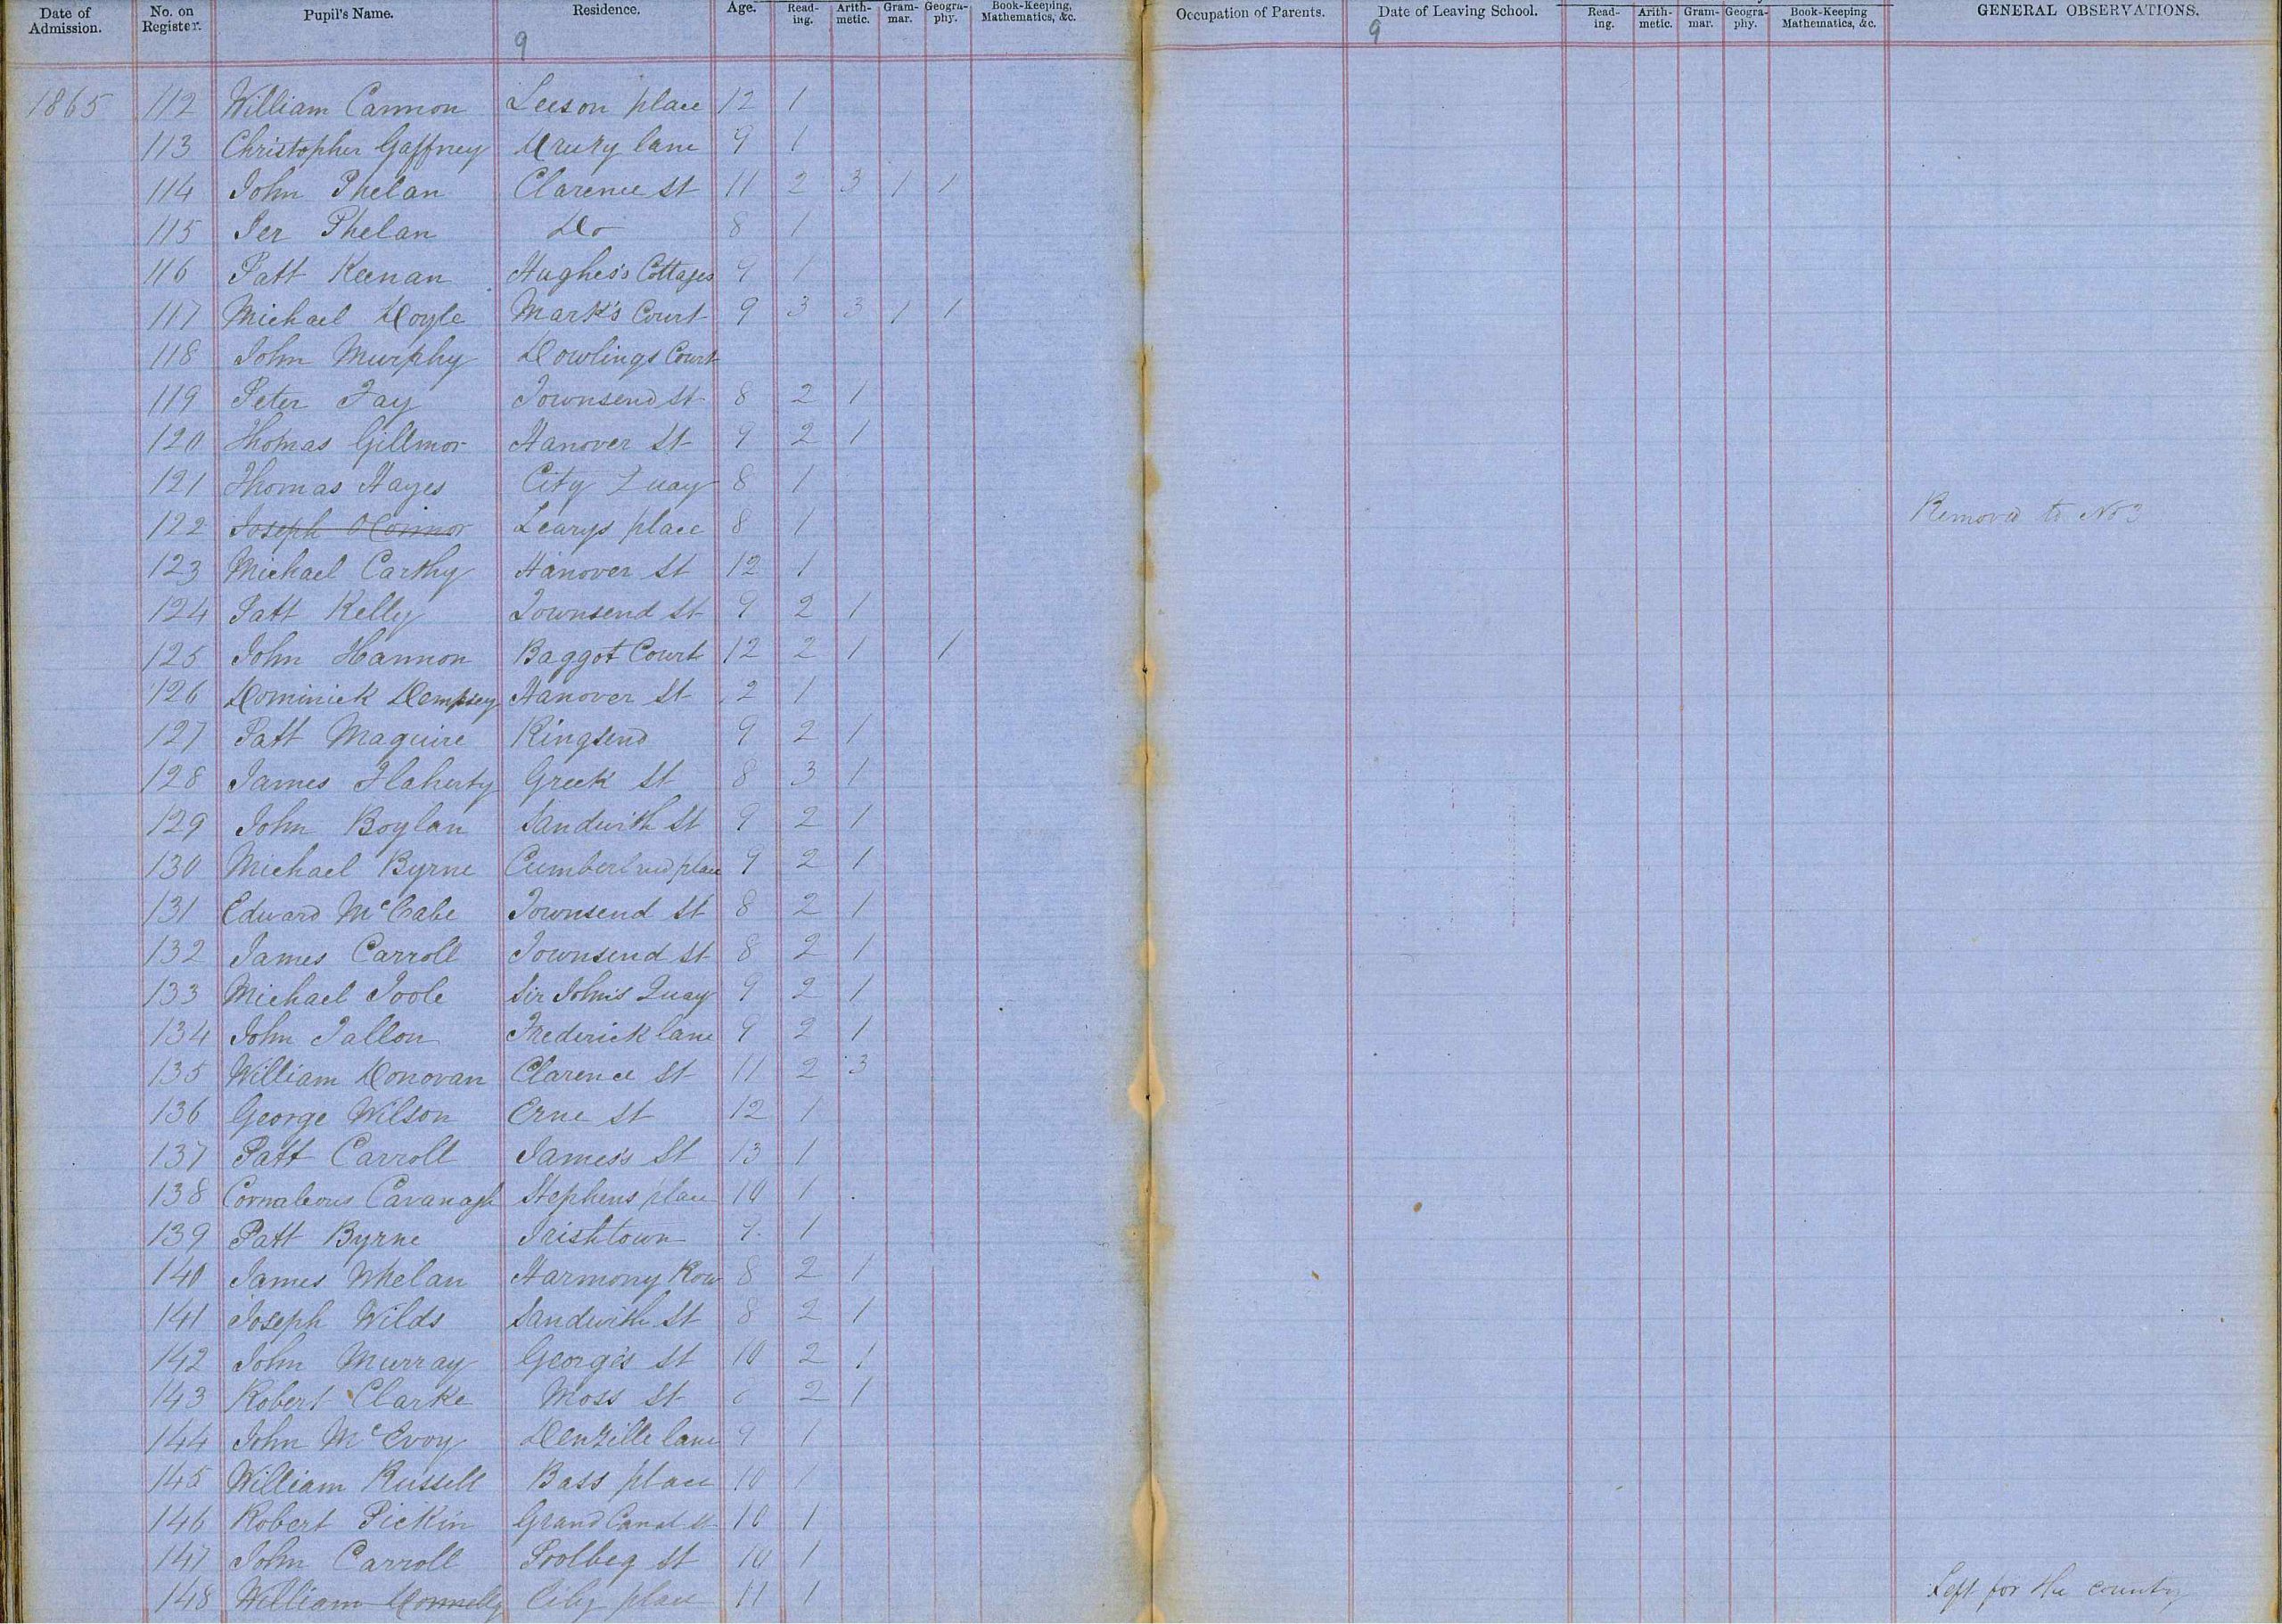 Date of Admission. No. on Register. Pupil's Name. Residence. Age. Reading. Arithmetic. Grammar. Geography. Book-Keeping, Mathematics, &c. Occupation of Parents. Date of Leaving School. Reading. Arithmetic. Grammar. Geography. Book-Keeping Mathematics, &c. GENERAL OBSERVATIONS.
9 9
1865 112 William Cannon Leeson place 12 1
113 Christopher Gaffney Drury lane 9 1
114 John Phelan Clarence St 11 2 3 1 1
115 Jer Phelan Do 8 1
116 Patt Keenan Hughes's Cottages 9 1
117 Michael Doyle Mark's Court 9 3 3 1 1
118 John Murphy Dowlings Court
119 Peter Fay Townsend St 8 2 1
120 Thomas Gillmor Hanover St 9 2 1
121 Thomas Hayes City Quay 8 1
122 Joseph O'Connor Learys place 8 1 Removed to No 3
123 Michael Carthy Hanover St 12 1
124 Patt Kelly Townsend St 9 2 1
125 John Hannon Baggot Court 12 2 1 1
126 Dominick Dempsey Hanover St 2 1
127 Patt Maguire Ringsend 9 2 1
128 James Flaherty Greek St 8 3 1
129 John Boylan Sandwith St 9 2 1
130 Michael Byrne Cumberland place 9 2 1
131 Edward McCabe Townsend St 8 2 1
132 James Carroll Townsend St 8 2 1
133 Michael Toole Sir John's Quay 9 2 1
134 John Tallon Frederick lane 9 2 1
135 William Donovan Clarence St 11 2 3
136 George Wilson Erne St 12 1
137 Patt Carroll James's St 13 1
138 Cornaleous Cavanagh Stephens place 10 1
139 Patt Byrne Irishtown 1
140 James Whelan Harmony Row 8 2 1
141 Joseph Wilds Sandwith St 8 2 1
142 John Murray George's St 10 2 1
143 Robert Clarke Moss St 2 1
144 John McEvoy Denzille lane 9 1
145 William Russell Bass place 10 1
146 Robert Pickin Grand Canal St 10 1
147 John Carroll Poolbeg St 10 1
148 William Donnelly City place 11 1 Left for the country